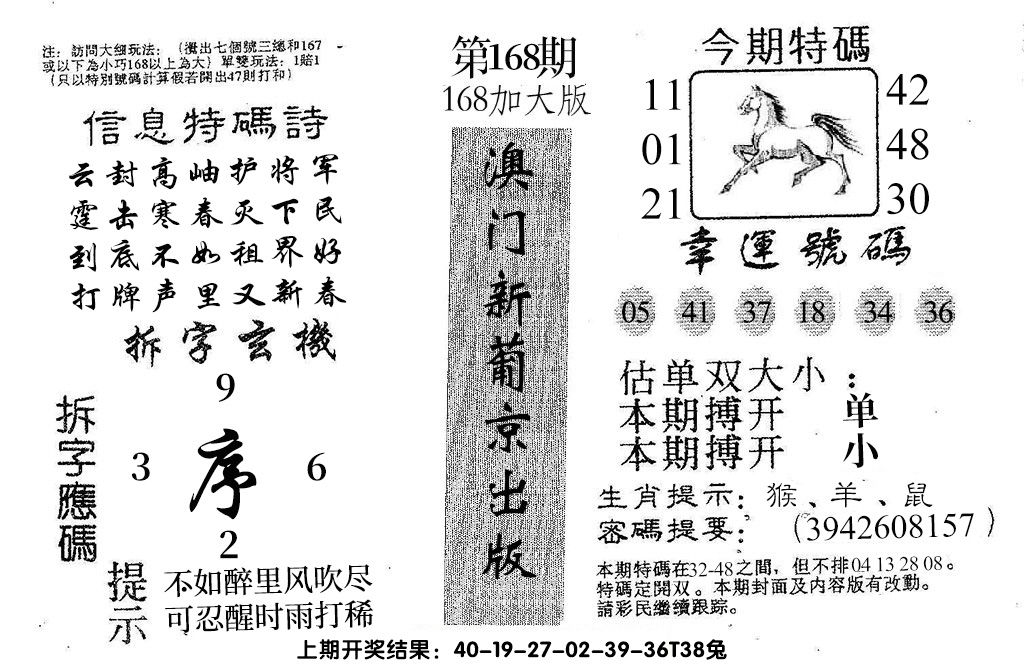 注：訪問大细玩法：（攪出七個號三總和167
或以下為小巧168以上為大）單雙玩法：1賠1
（只以特別號碼計算假若開出47則打和）
信息特碼詩
云封高岫护将军
霆击寒春灭下民
到底不如租界好
打牌声里又新春
拆字玄機
拆字應碼
9
3 序 6
2
提示
不如醉里风吹尽
可忍醒时雨打稀
第168期
168加大版
澳门新葡京出版
今期特碼
11 42
01 48
21 30
幸運號碼
05 41 37 18 34 36
估单双大小：
本期搏开 单
本期搏开 小
生肖提示：猴、羊、鼠
密碼提要：（3942608157）
本期特碼在32-48之間，但不排04 13 28 08。
特碼定開双。本期封面及内容版有改動。
請彩民繼續跟踪。
上期开奖结果：40-19-27-02-39-36T38兔